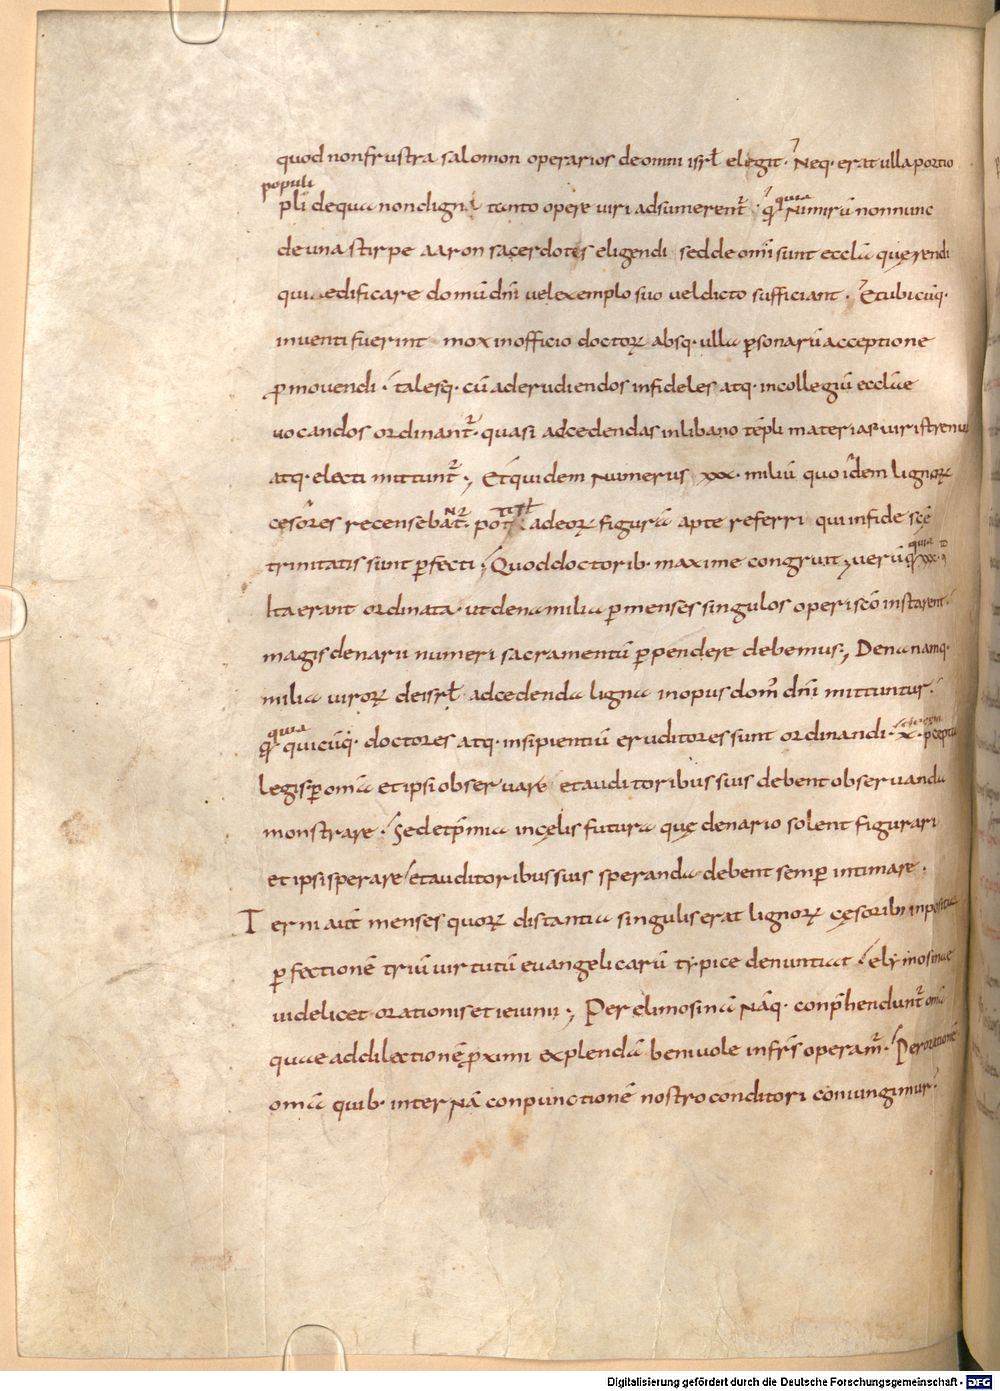 quod non frustra salomon operarios de omni isrł elegit. Neq· erat ulla portio
populi
pli de qua non digni tanto opere uiri adsumerent᷑. quia Nimirū non nunc
de una stirpe aaron sacerdotes eligendi sed de omi sunt eccła quęrendi
qui aedificare domū dn̄i uel exemplo suo uel dicto sufficiant. Et ubicūq·
inventi fuerint mox in officio doctorꝝ absq· ulla ꝑsonarū acceptione
ꝓmovendi. talesq· cū ad erudiendos infideles atq· in collegiū ecclae
uocandos ordinant᷑. quasi ad cedendas in libano tēpli materias uiri strenui
atq· electi mittunt᷑; Et quidem Numerus xxx· miliū quo idem lignorꝝ
cesores recensebat᷑. pot adeorꝝ figurā apte referri qui in fide scę̄
trinitatis sunt ꝑfecti; Quod doctorib· maxime congruit; uerū quia xxx·
Ita erant ordinata. ut dena milia ꝑ menses singulos operi scō instarent.
magis denarii numeri sacramentū ꝑpendere debemus; Dena namq·
milia uirorꝝ de isrł ad cedenda ligna in opus dom̄ dn̄i mittuntur.
quia
quicūq· doctores atq· insipientiū eruditores sunt ordinandi. x· pcepta
legis ꝑ om̄a et ipsi obseruare et auditoribus suis debent obseruanda
monstrare. Sed et p̄mia in cęlis futura quę denario solent figurari
et ipsi sperare et auditoribus suis speranda debent semꝑ intimare.
Terni aut̄ menses quorꝝ distantia singulis erat lignorꝝ cęsorib· inposita
ꝑfectionē triū uirtutū evangelicarū typice denuntiat. elymosinae
uidelicet orationis et ieiunii; Per elimosinā Nāq· conp̄hendunt᷑ om̄a
quae ad dilectionē ꝓximi explendā benivole in fr̄s operam᷑. Per orationē
om̄a quib· inter Nā conpunctionē nostro conditori coniungimur.
Digitalisierung gefördert durch die Deutsche Forschungsgemeinschaft - DFG